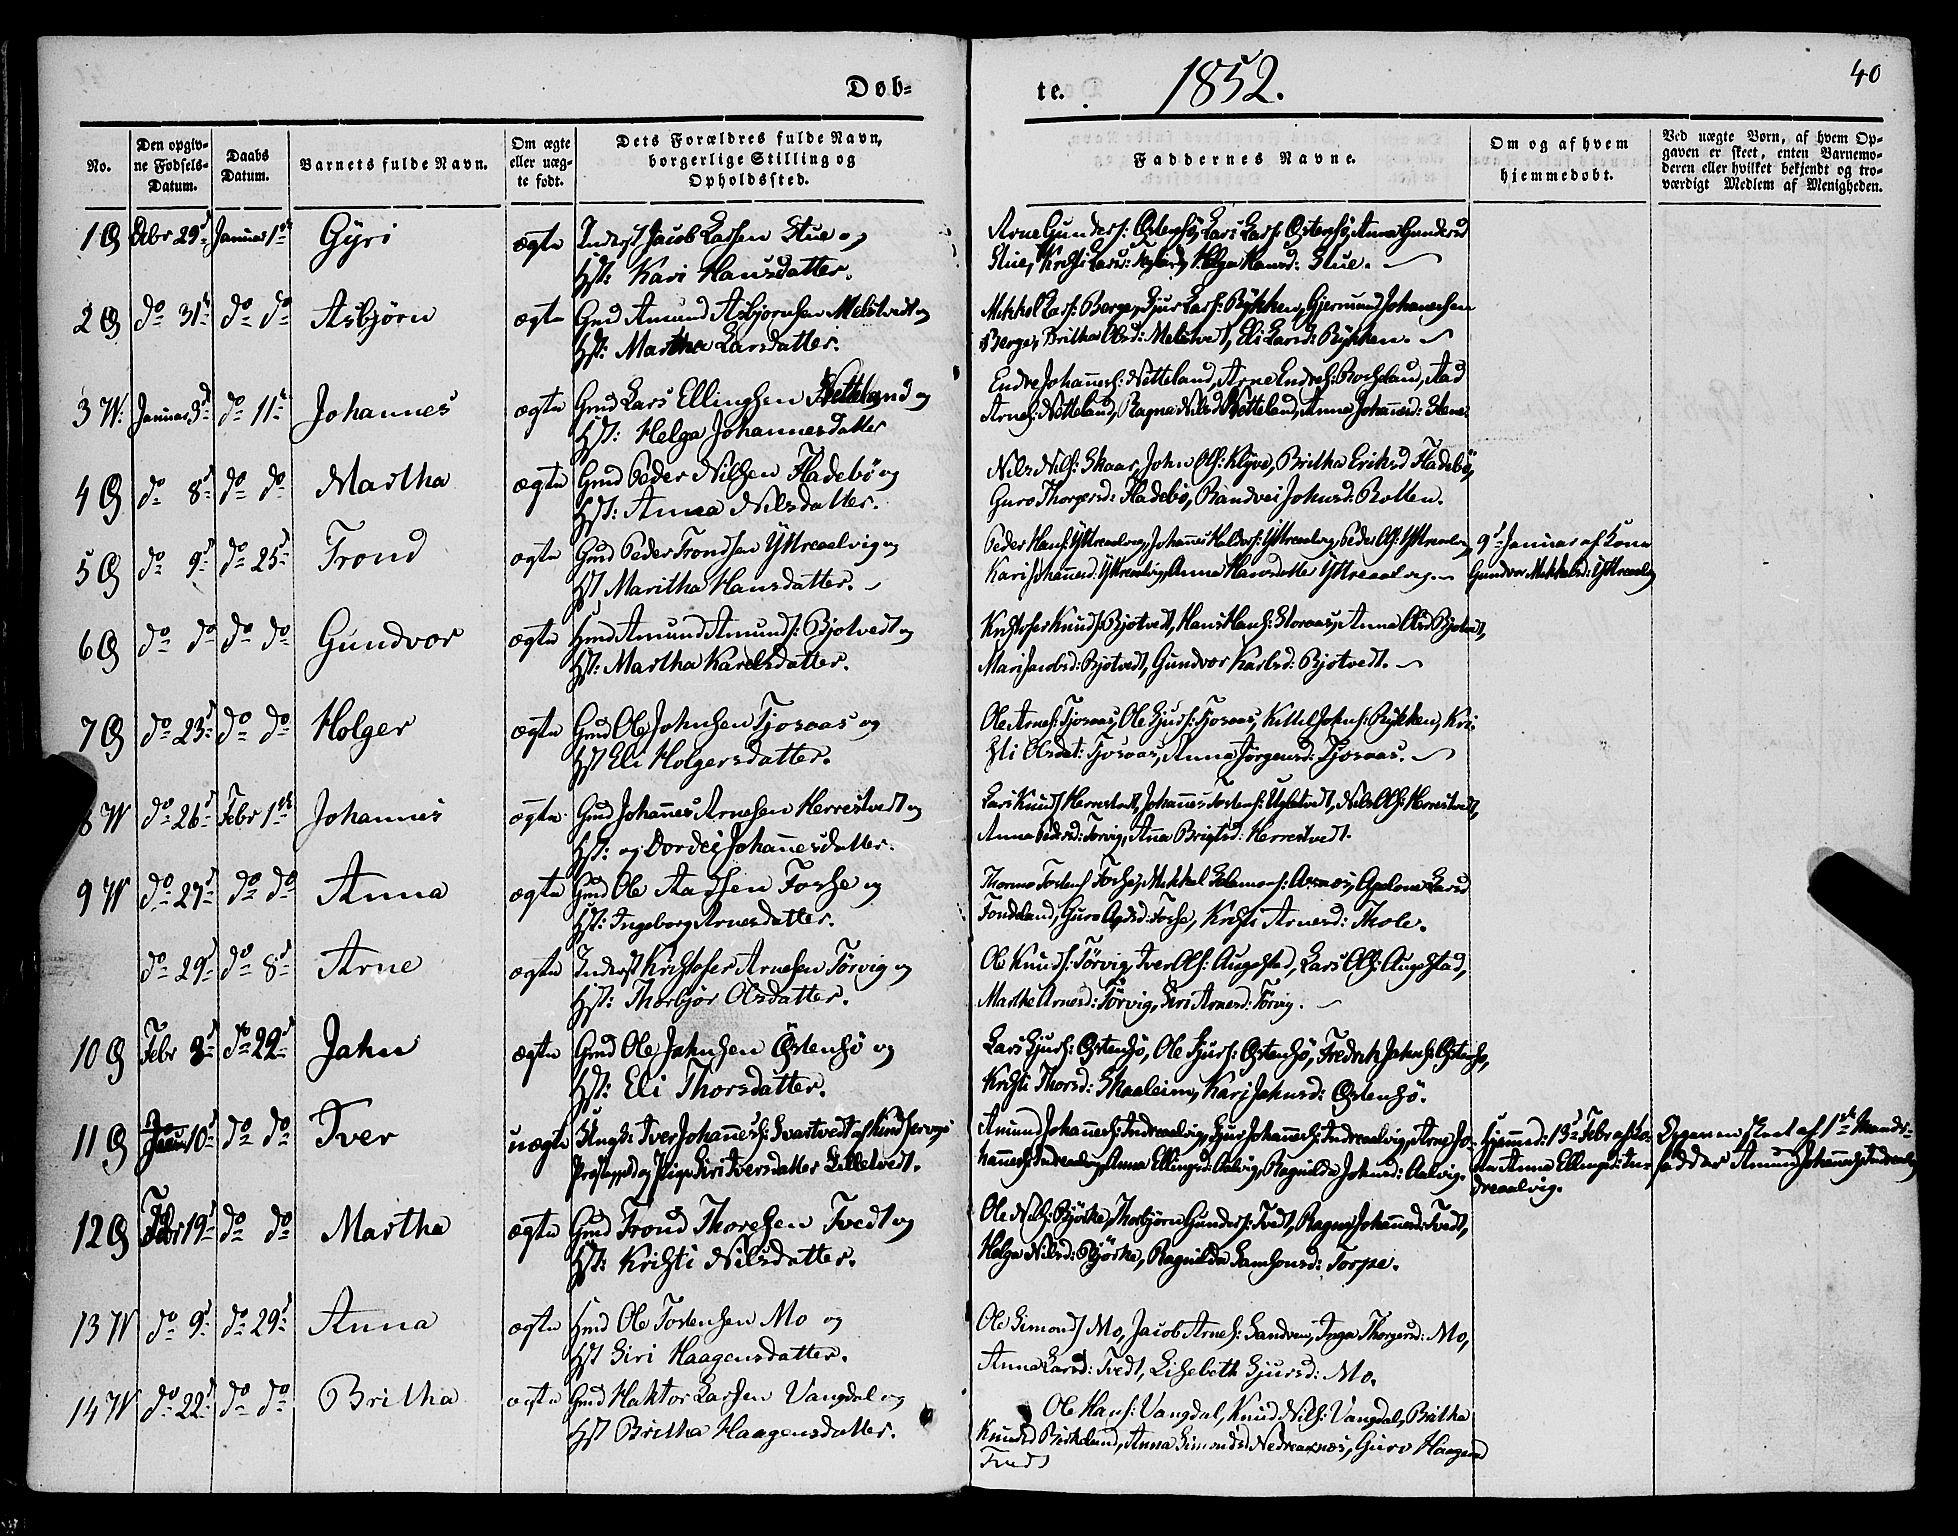 Døb-
te. 1852. 40
No.
Den opgiv-
ne Fødsels-
Datum.
Daabs
Datum.
Barnets fulde Navn.
Om ægte
eller uæg-
te født.
Dets Forældres fulde Navn,
borgerlige Stilling og
Opholdssted.
Faddernes Navne.
Om og af hvem
hjemmedøbt.
Ved uægte Børn, af hvem Op-
gaven er skeet, enten Barnemo-
deren eller hvilket bekjendt og tro-
værdigt Medlem af Menigheden.
1 Ø Dcbr 29d Januar 1ste Gÿri ægte Inderst Jacob Larsen Stue og
Hst: Kari Hansdatter.
Arne Gunders: Østensø, Lars Lars: Østensø, Anna Gundersd
Stue, Kristi Larsd: Helga Hansd: Stue.
2 Ø do 31te do do Asbjørn ægte Gmd Amund Asbjørnsen Melstvedt og
Hst: Martha Larsdatter.
Mikkel Lars: Berge, Sjur Lars: Rykken, Gjermund Johannesen
Berge, Britha Olsd: Melstvedt, Eli Larsd: Rykken.
3 W: Januar 3d do 11te Johannes ægte Gmd Lars Ellingsen Netteland og
Hst: Helga Johannesdatter
Endre Johannes: Netteland, Arne Endres: Aad
Arnes: Netteland, Ragna Nilsd Netteland, Anna Johannesd: Stene.
4 Ø do 8d do do Martha ægte Gmd Peder Nilsen Fladebø og
Hst: Anna Nilsdatter.
Nils Nils: Skaar, John Ols: Klyve, Britha Eriksd Fladebø,
Guro Thorgersd: Fladebø, Randvei Johnsd: Botten.
5 Ø do 9d do 25d Trond ægte Gmd Peder Trondsen Yttreaalvig og
Hst Maritha Hansdatter.
Peder Hans: Yttreaalvig, Johannes Yttreaalvig, Peder Ols: Yttreaalvig
Kari Johannesd: Yttreaalvig, Anna Hansdatter Yttreaalvig.
9d Januar af Kone
Gundvor Mikkelsd: Yttreaalvig
6 Ø do do do do Gundvor ægte Hmd Amund Amunds: Bjotvedt og
Hst: Martha Karelsdatter.
Kristofer Knuds: Bjotvedt, Hans Hans: Storaas, Anna Olsd Bjotvedt,
Mari Jacobsd: Bjotvedt, Gundvor Karlsd: Bjotvedt.
7 Ø do 23d do do Holger ægte Gmd Ole Johnsen Fjosaas og
Hst Eli Holgersdatter.
Ole Arnes: Fjosaas, Ole Sjurs: Fjosaas, Kittel Johns: Rykken, Kri-
sti Olsdat: Fjosaas, Anna Jørgensd: Fjosaas.
8 W do 26d Febr 1ste Johannes ægte Gmd Johannes Arnesen Herrestvedt og
Hst: og Dordei Johannesdatter.
Lars Knuds Herrestvedt, Johannes Tostens: Nils Ols: Herrestvedt,
Anna Pedersd: Torvig, Anna Brigtsd: Herrestvedt.
9 W do 27d do do Anna ægte Gmd Ole Aadsen Fosse og
Hst: Ingeborg Arnesdatter.
Thormo Tostens Fosse, Mikkel Salamons: Axnæs, Apelone Larsd
Tondeland, Guro Aadsd: Fosse, Kristi Arnesd: Thole.
do 29d do 8d Arne ægte Inderst Kristofer Arnesen Tørvig og
Hst: Thorbjør Olsdatter.
Ole Knuds: Tørvig, Iver Ols: Augestad, Lars Ols: Augestad,
Marthe Arnesd: Tørvig, Siri Arnesd: Tørvig.
10 Ø Febr 3d do 22d Jahn ægte Gmd Ole Jahnsen Østensø og
Hst: Eli Thorsdatter.
Lars Sjurs: Østensø, Ole Sjurs: Østensø, Fredrik Jahns: Østensø,
Kristi Thorsd: Skaaleim, Kari Jahnsd: Østensø.
11 Ø 10d do do Iver uægte Ungk: Iver Johannes: Svartvedt af
Præstegjeld og Pige Siri Iversdatter Lilletvedt.
Amund Johannes: Indreaalvig, Sjur Johannes: Indreaalvig, Arne Jo-
hannes: Indreaalvig, Anna Ellingsd: Aalvig, Ragnilda Johnsd: Aalvig.
Hjemmed: 13d Febr af Ko-
ne Anna Ellingsd: In-
dreaalvig.
Opgaven skeet af 1ste Mands-
fadder Amund Johannes: Indreaalvig
12 Ø Febr 19d do do Martha ægte Gmd Trond Thoresen Tvedt og
Hst: Kristi Nilsdatter.
Ole Nils: Bjørke, Thorbjørn Gunders: Tvedt, Ragna Johannesd: Tvedt,
Helga Nilsd: Bjørke, Ragnilda Samsonsd: Torpe.
13 W do 9d do 29d Anna ægte Hmd Ole Tostensen Mo og
Hst Siri Haagensdatter.
Ole Simons Mo, Jacob Arnes: Sandven, Inga Thorgersd: Mo,
Anna Larsd: Tvedt, Lisebeth Sjursd: Mo.
14 W do 22d do do Britha ægte Gmd Haktor Larsen Vangdal og
Hst Britha Haagensdatter.
Ole Hans: Vangdal, Knud Nils: Vangdal, Britha
Knudsd Birkeland, Anna Simonsd Nedreaxnæs, Guro Haagensd
Tvedt